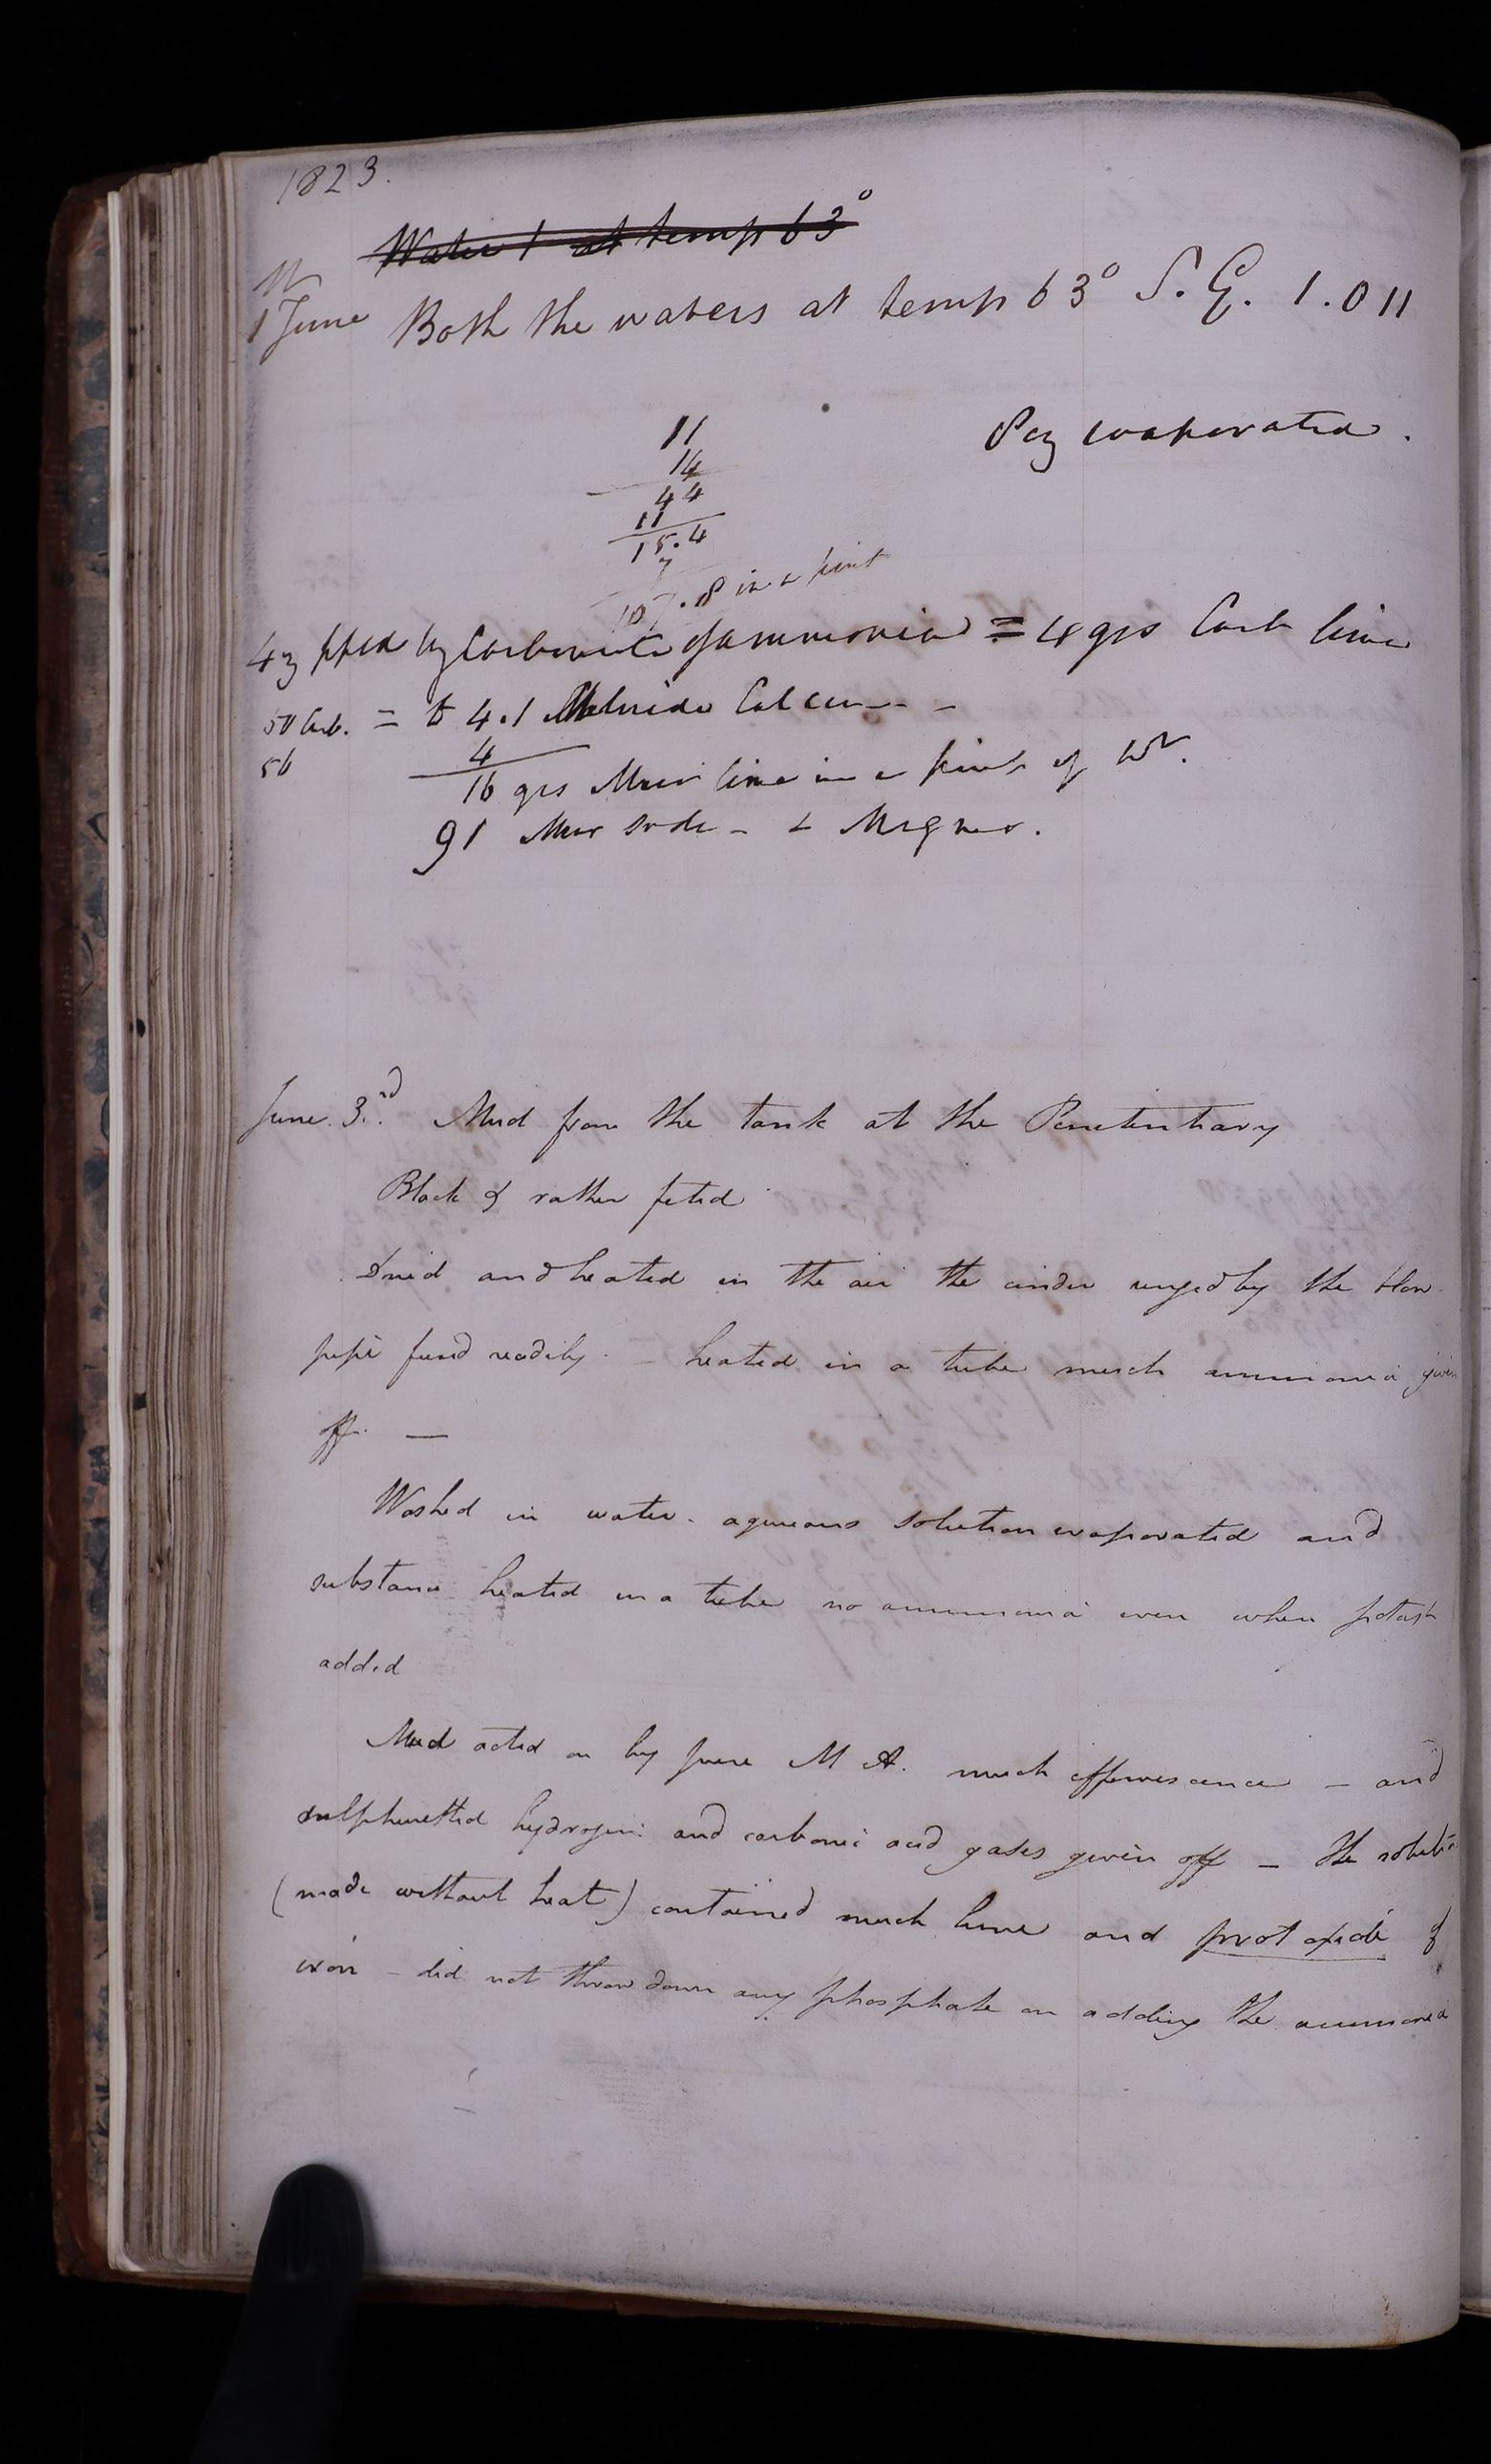 1823.
Water 1 at temp 63°
1 June Both the waters at temp 63° S.G. 1.011
8 oz evaporated.
11
14
44
11
15.4
7
107.8 in a pint
4 oz pptd by Carbonate of ammonia = 4 grs Carb lime
50 Carb. = to 4.1 Calcium
56
4
16 grs Mur lime in a pint of Wr.
91 Mur soda - & Magnes.
June 3rd. Mud from the tank at the Penetentiary
Black & rather fetid
Dried and heated in the air the cinder urged by the blow
pipe fused readily. - heated in a tube much ammonia given
off. —
Washed in water. aqueous solution evaporated and
substance heated in a tube no ammonia even when potash
added
Mud acted on by pure M A. much effervescence - and
sulphuretted hydrogen and carbonic acid gases given off - the solution
(made without heat) contained much lime and prot oxide of
iron - did not throw down any phosphate on adding the ammonia